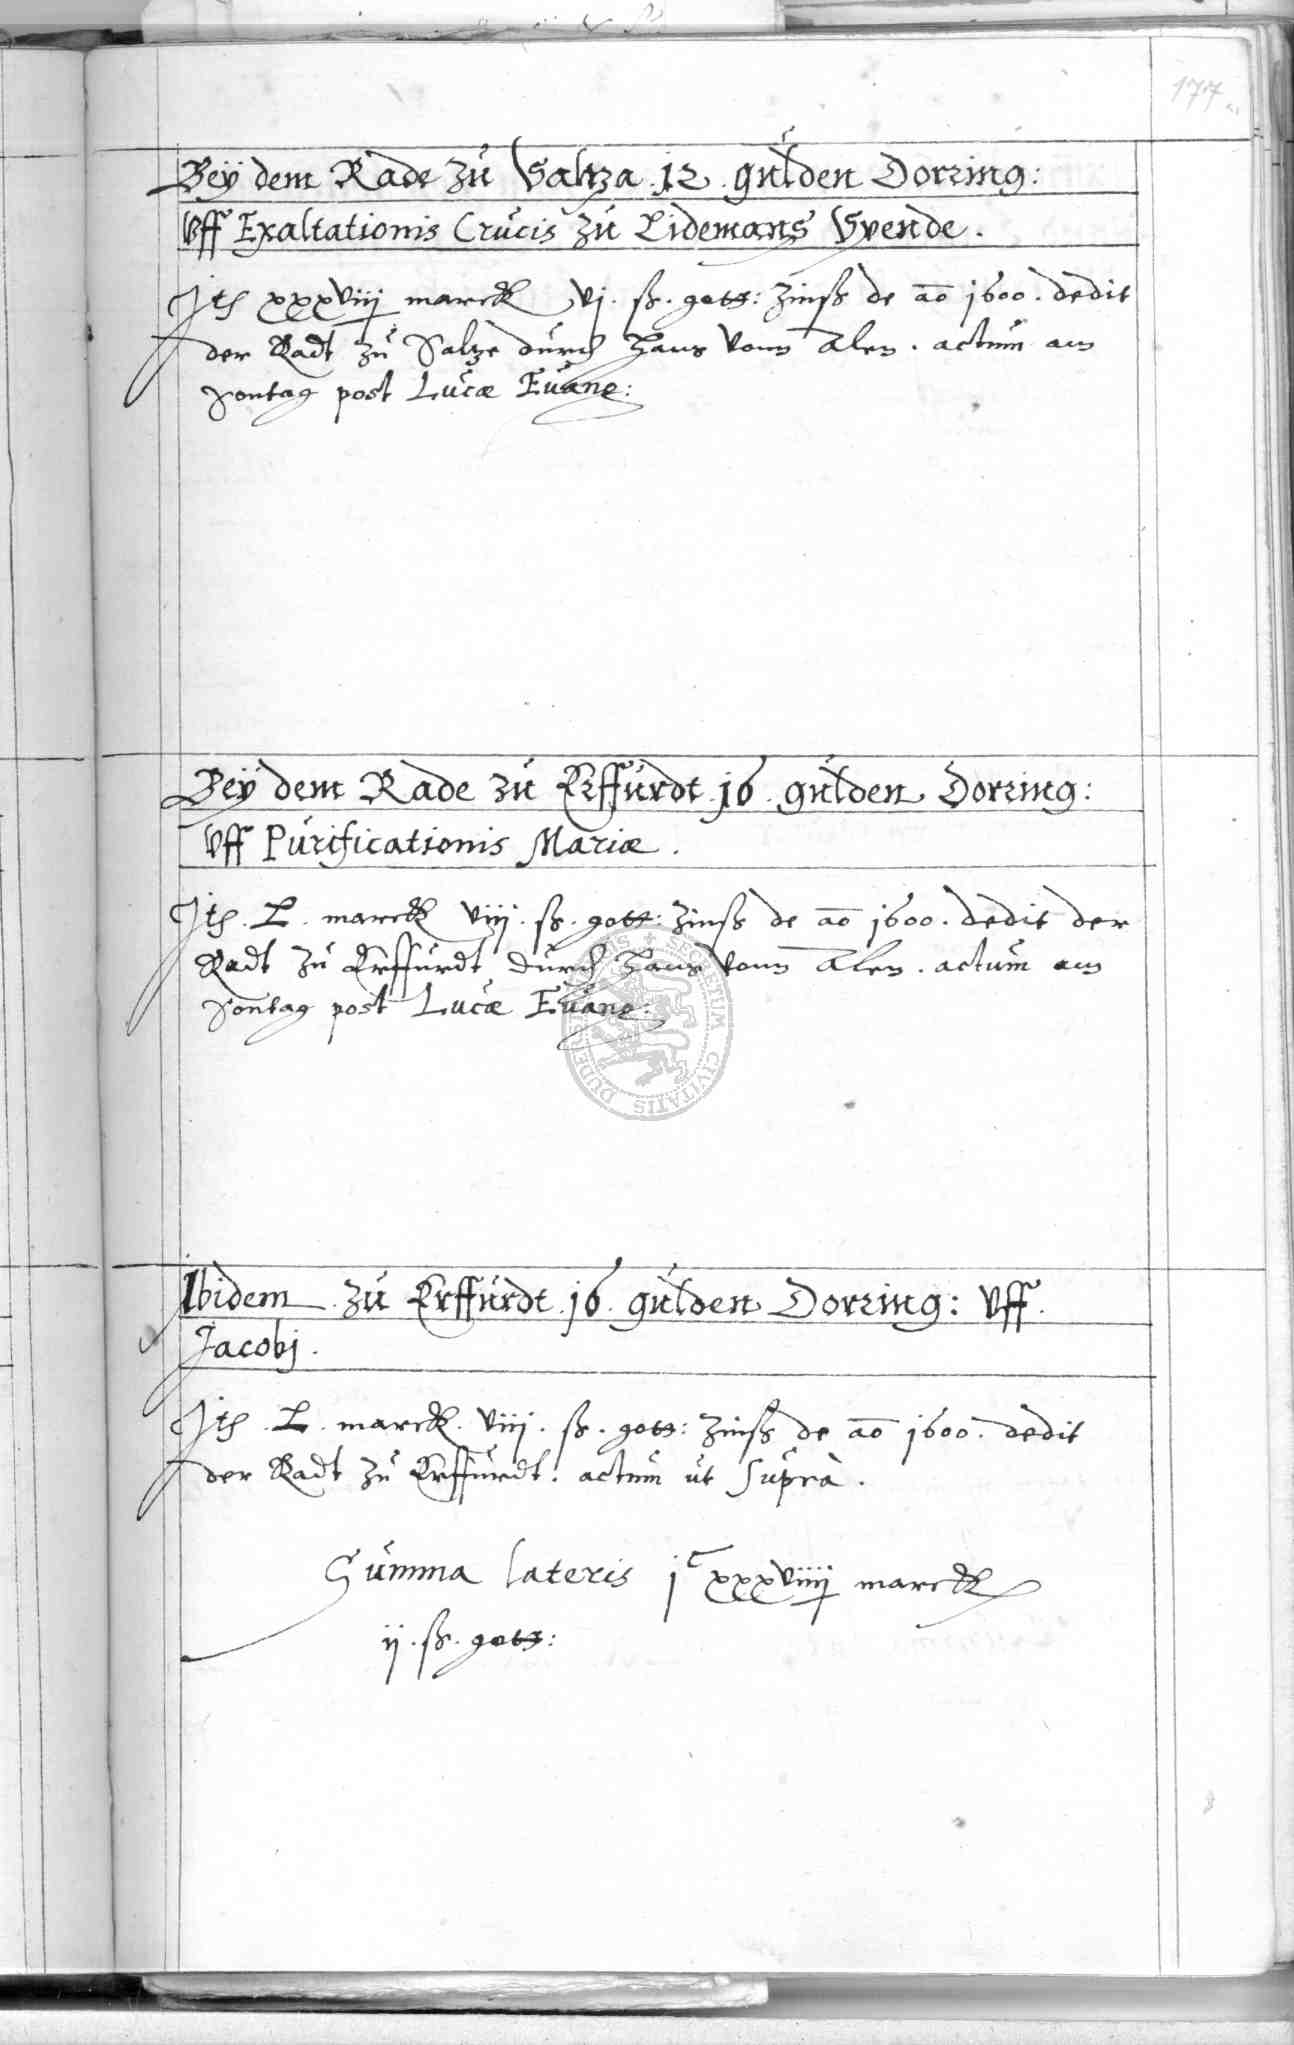 177
Beÿ dem Rade zu Saltza .12. gulden Dorring:
Vff Exaltationis Crucis zu Lidemans Spende.
Ith xxxviiij marck vj. ß. gott: Zinß de ao 1600. dedit
der Radt zu Saltze durch Hans vonn Alen. actum am
Sontag post Lucæ Evang:
Beÿ dem Rade zu Erffurdt .16. gulden Dorring:
Vff Purificationis Mariæ.
Ith. L. marck viij. ß. gott: Zinß de ao 1600. dedit der
Radt zu Erffurdt durch Hans vonn Alen. actum am
Sontag post Lucæ Evang:
SECRETUM CIVITATIS DUDERSTADENSIS
Ibidem zu Erffurdt .16. gulden Dorring: Vff
Jacobj.
Ith. L. marck. viij. ß. gott: Zinß de ao 1600. dedit
der Radt zu Erffurdt. actum ut suprà.
Summa lateris jc xxxviiij marck
ij. ß. gott: